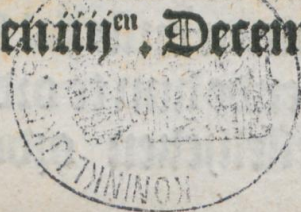 en iiij^en. Decem
KONINKLIJKE